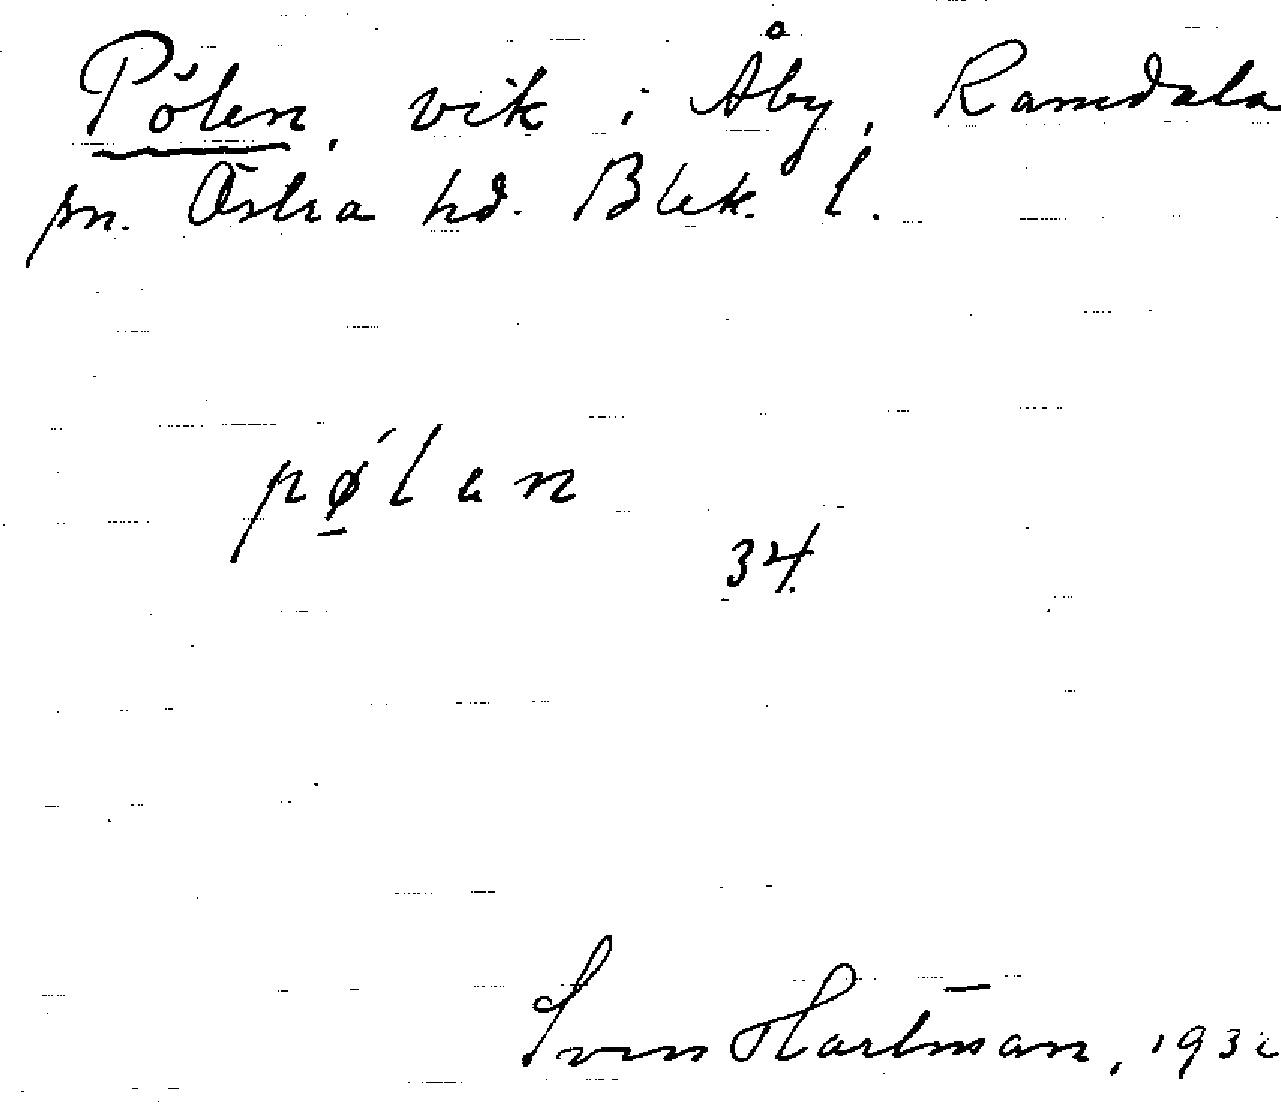 Pölen, vik i Åby, Ramdala
sn. Östra hd. Blek. l.
pǿlen
34.
Sven Hartman, 193